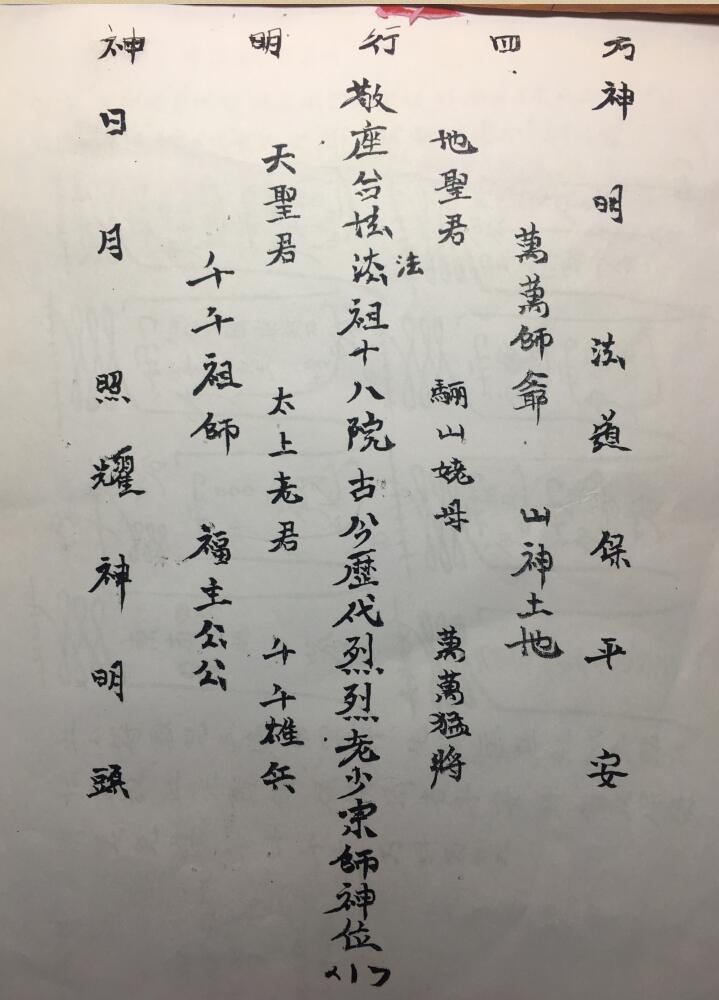 神明行四方
神明法道保平安
萬萬師爺 山神土地
地聖君 驪山姥母 萬萬猛將
法
敬座台法法祖十八院古今歷代烈烈老少宗師神位<1>
天聖君 太上老君 千千雄兵
千千祖師 福主公公
日月照耀神明頭